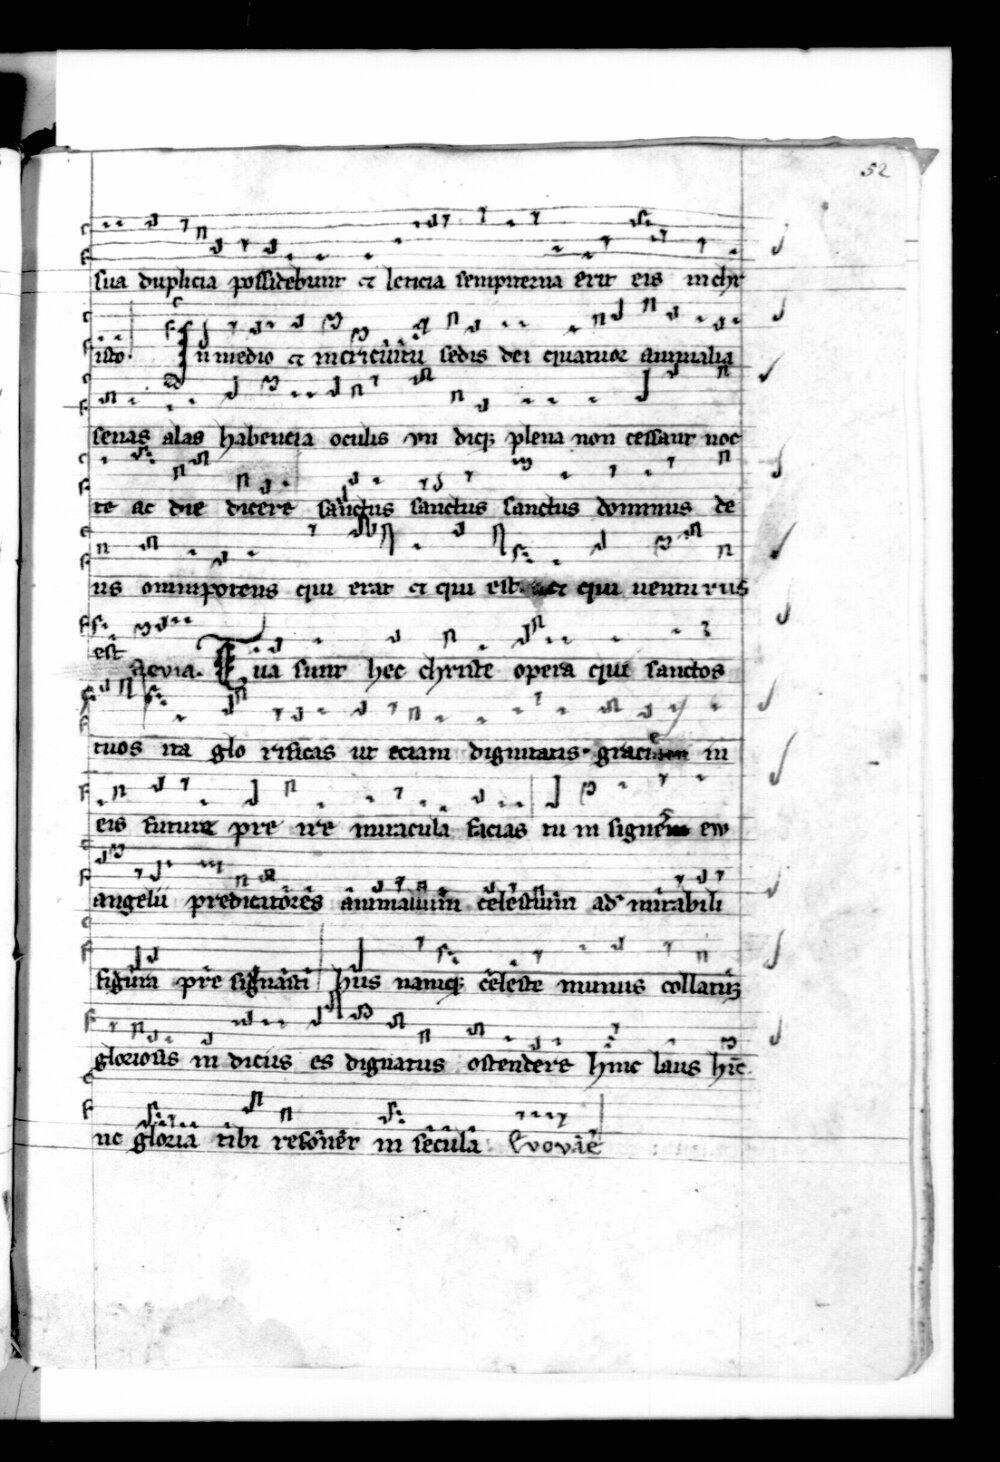 52
sua duplicia possidebunt et leticia sempiterna erit eis in chr
isto. In medio et in circuitu sedis dei quatuor animalia
senas alas habencia oculis un diq; plena non cessant noc
te ac die dicere sanctus sanctus sanctus dominus de
us omnipotens qui erat et qui est et qui uenturus
est aevia. Tua sunt hec christe opera qui sanctos
tuos ita glo rificas ut eciam dignitatis in
eis futura pre ire miracula facias tu in signes ew
angelii predicatores animalium celestium ad mirabili
figura pre signasti hiis namq; celeste munus collatu
gloriosis in diciis es dignatus ostendere hinc laus hic
nc gloria tibi resonet in secula Evovae